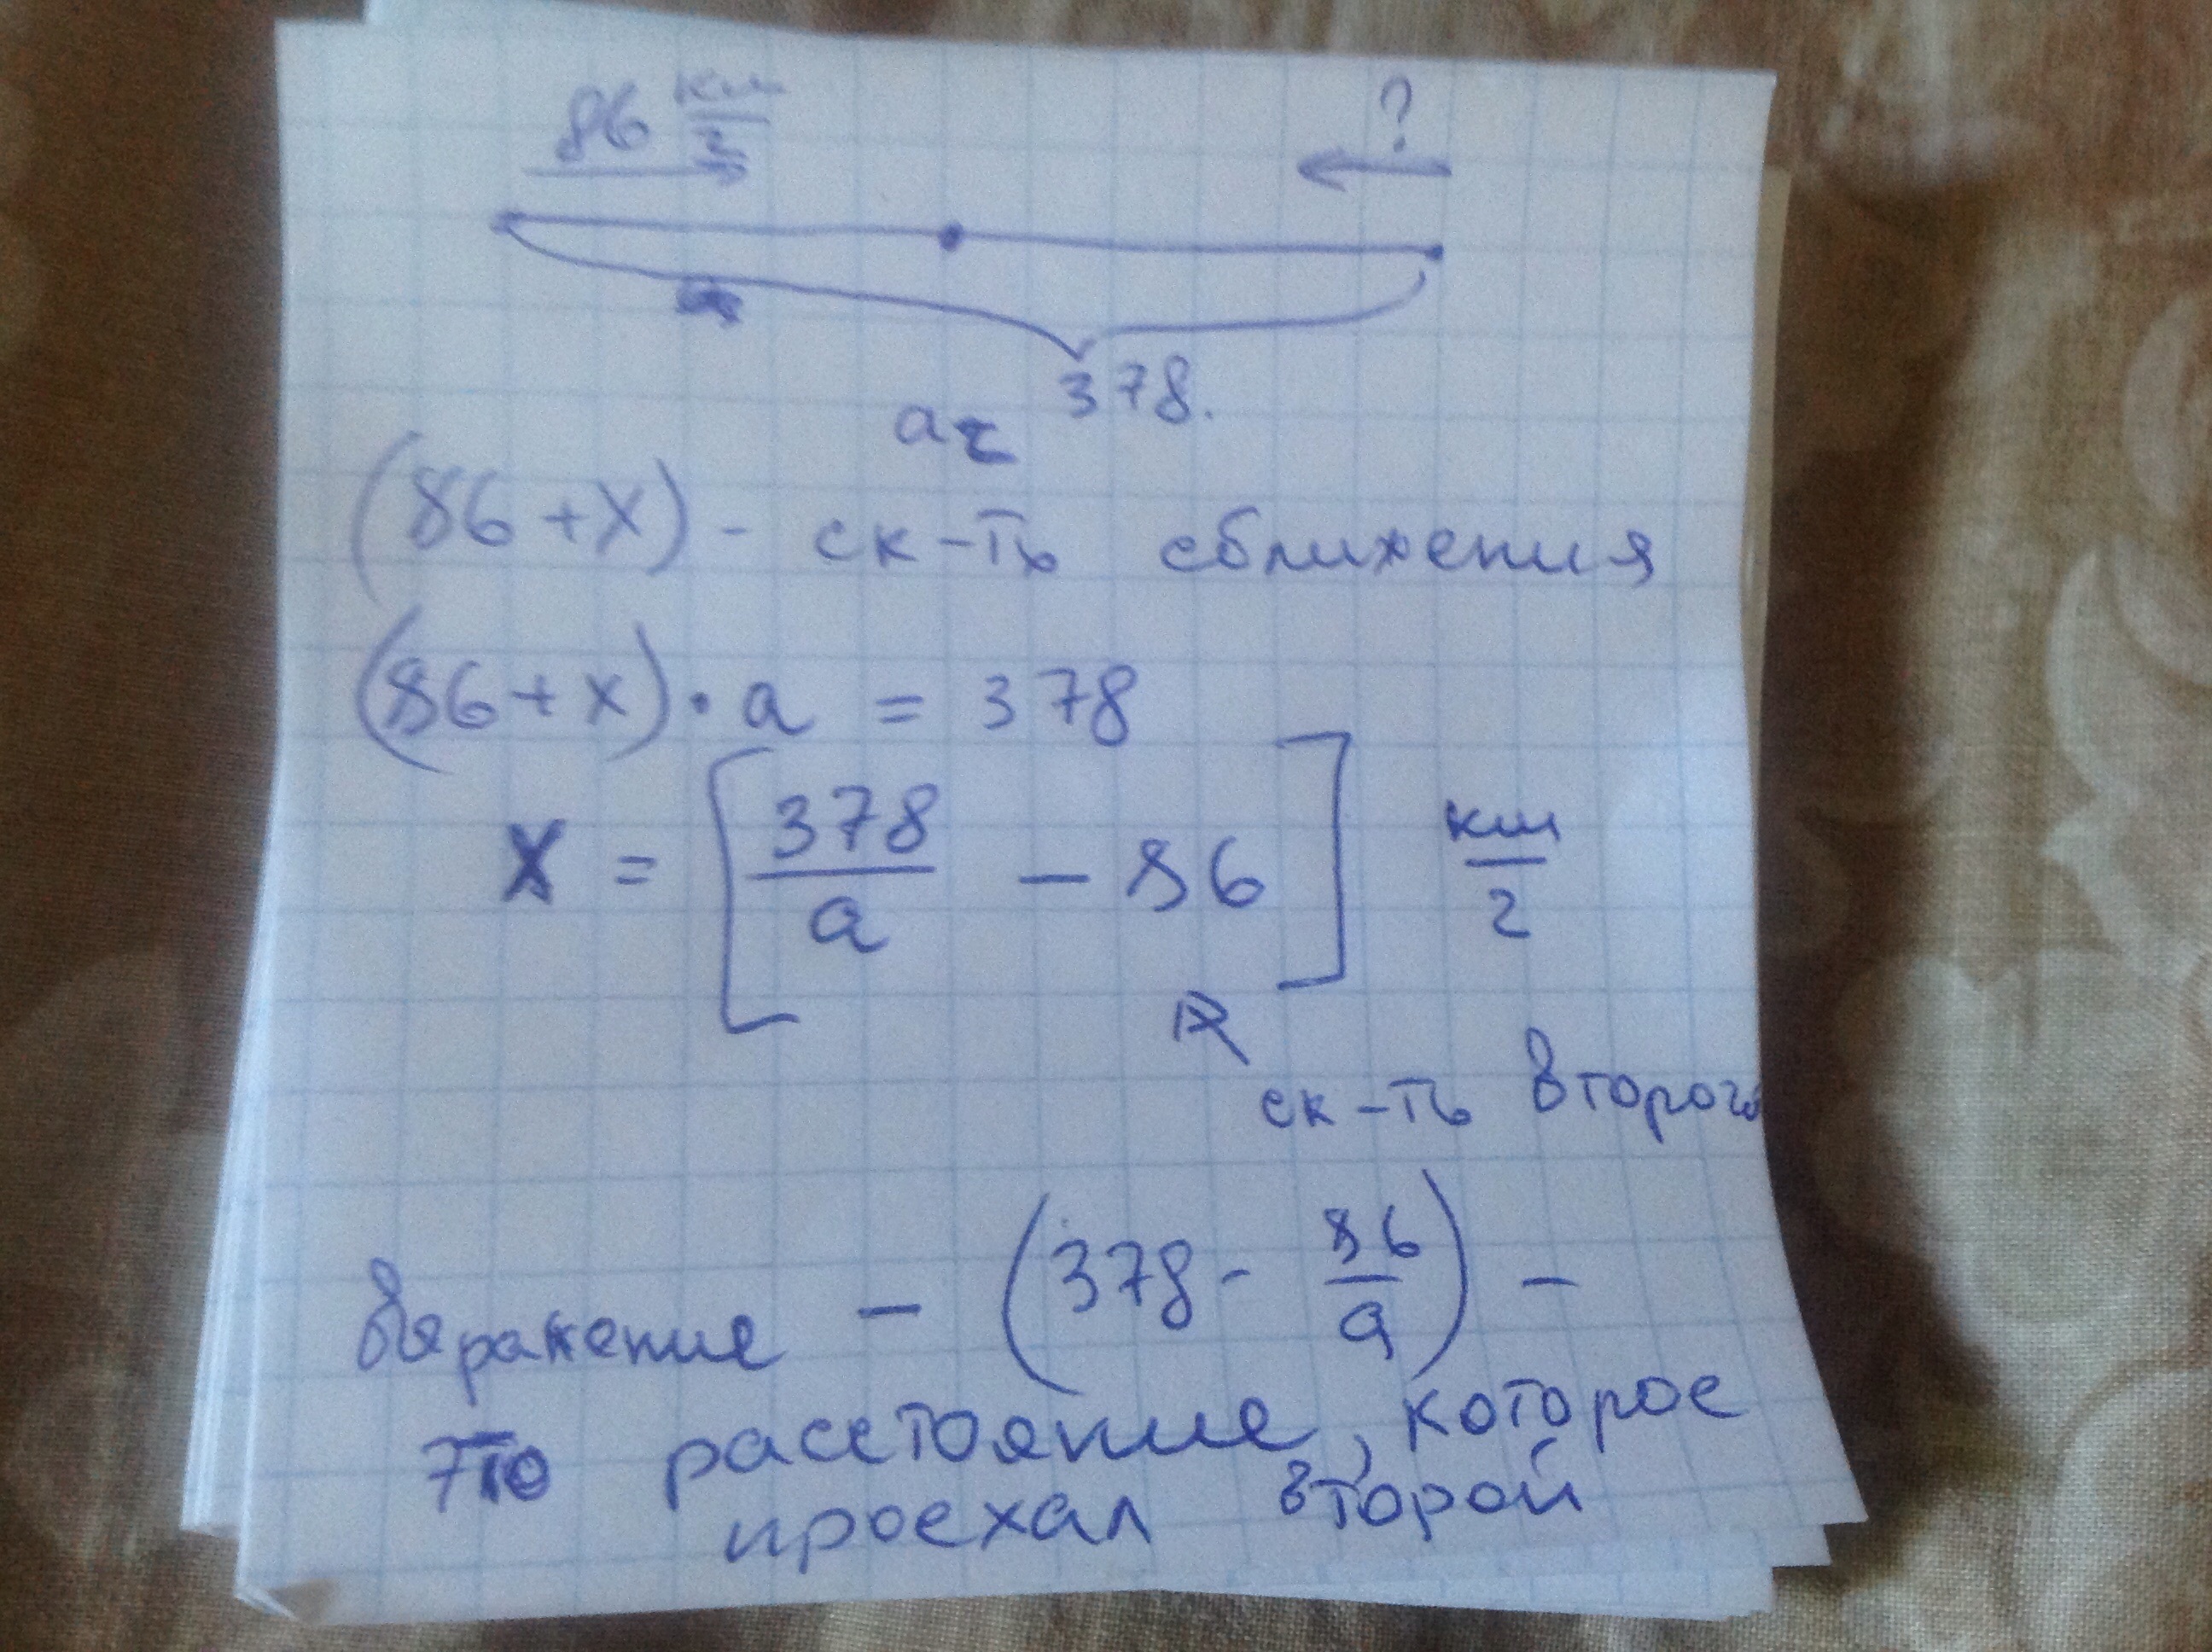 86 км/ч ?
378.
а ч
(86+x) - ск-ть сближения
(86+x)·a = 378
x = [378/a - 86] км/ч
ск-ть второго
выражение - (378 - 86/a) -
это расстояние, которое
проехал второй